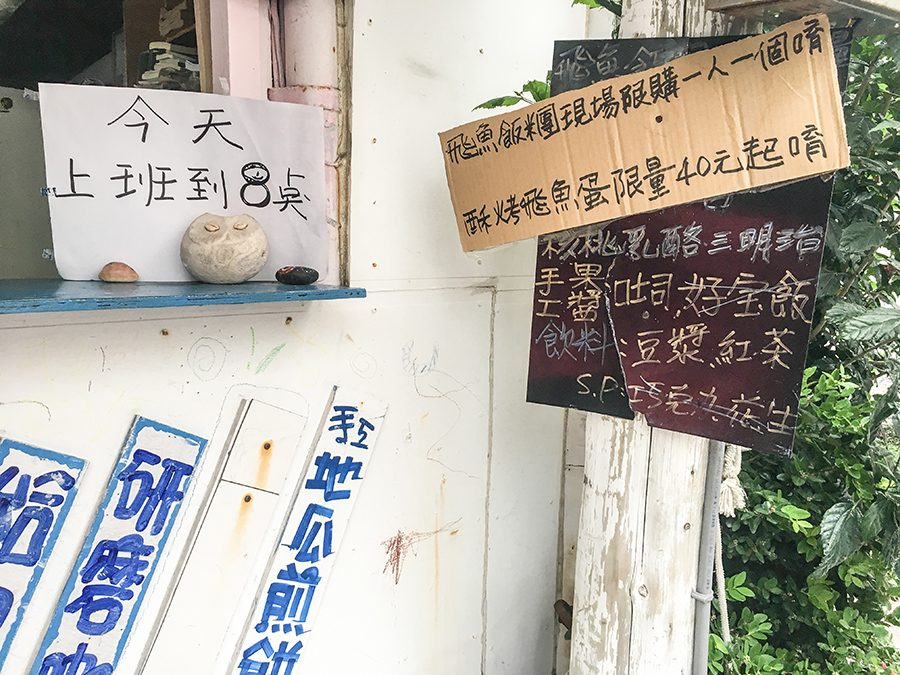 今天
上班到8点
飛魚飯糰現場限購一人一個唷
酥烤飛魚蛋限量40元起唷
核桃乳酪三明治
手工果醬吐司.好宝飯
飲料:豆漿.紅茶
S.P.巧克力花生
手工地瓜煎餅
研磨咖